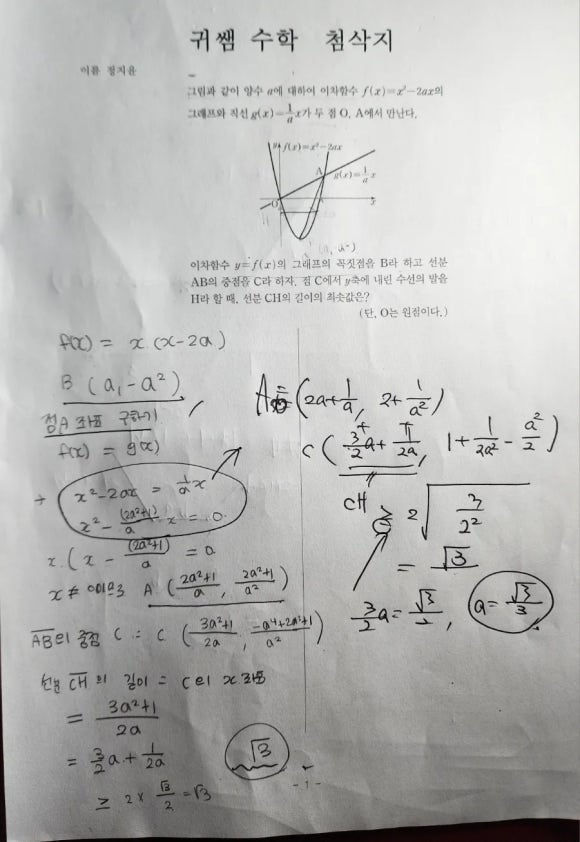 귀쌤 수학 첨삭지
이름 정지윤
그림과 같이 양수 a에 대하여 이차함수 f(x)=x²-2ax의
그래프와 직선 g(x)=1/a x가 두 점 O, A에서 만난다.
y f(x)=x²-2ax
A g(x)=1/a x
O x
(a, -a²)
이차함수 y=f(x)의 그래프의 꼭짓점을 B라 하고 선분
AB의 중점을 C라 하자. 점 C에서 y축에 내린 수선의 발을
H라 할 때, 선분 CH의 길이의 최솟값은?
(단, O는 원점이다.)
f(x) = x(x-2a)
B (a, -a²)
점A 좌표 구하기
f(x) = g(x)
x²-2ax = 1/a x
x² - (2a²+1)/a x = 0
x(x - (2a²+1)/a) = 0
x≠0이므로 A ((2a²+1)/a, (2a²+1)/a²)
AB의 중점 C = C ((3a²+1)/2a, (-a⁴+2a²+1)/a²)
선분 CH의 길이 = C의 x좌표
= (3a²+1)/2a
= 3/2 a + 1/2a
≥ 2 × √3/2 = √3
√3
A = (2a+1/a, 2+1/a²)
C (3/2 a + 1/2a, 1+1/2a² - a²/2)
CH ≥ 2√(3/2²)
= √3
3/2 a = √3/2, a = √3/3
- 1 -